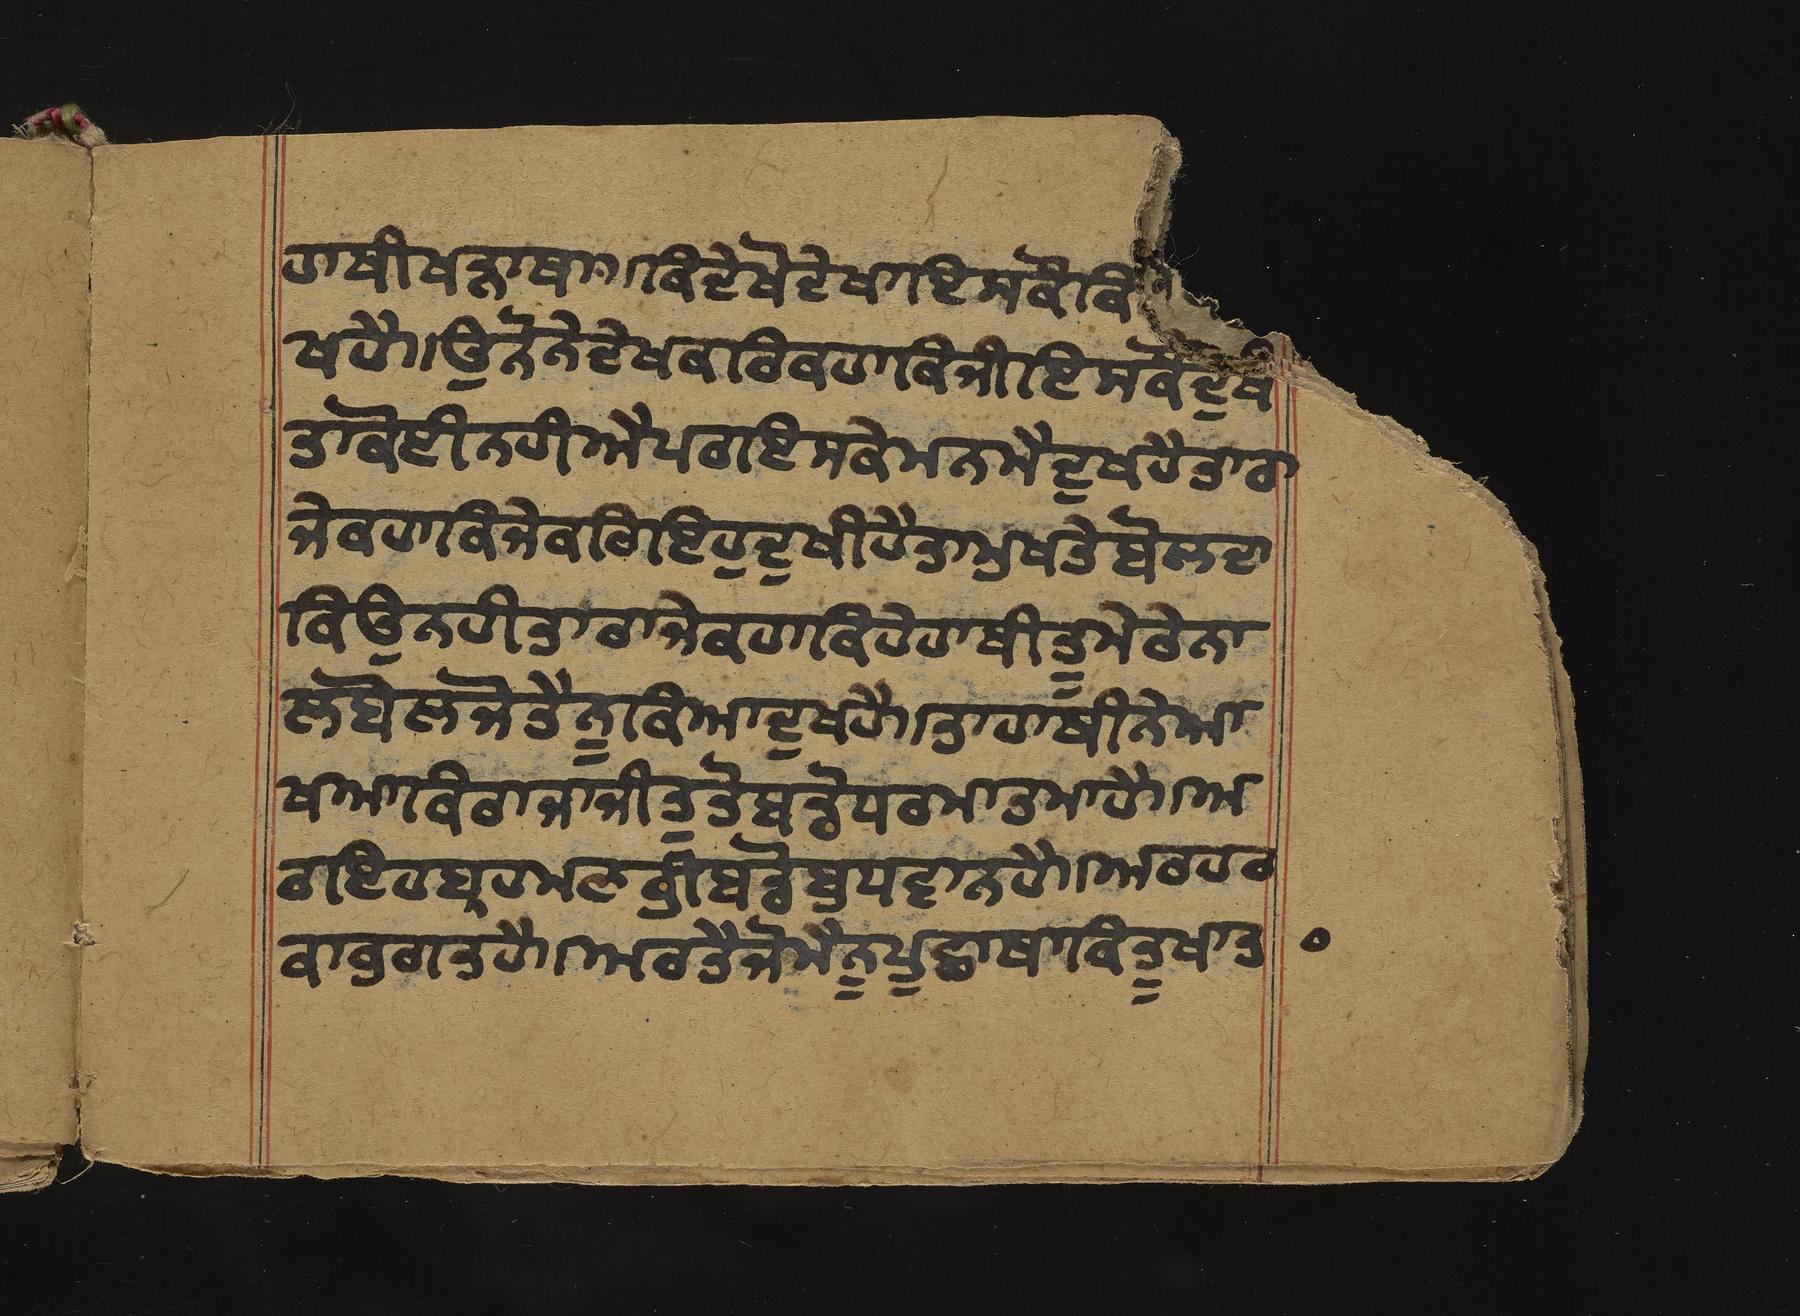 ਹਾਥੀਖੜਾਥਾ।।ਕਿਦੇਖੋਦੇਖਾਇਸਕੌਕਿ
ਖਹੈ।।ਉਨੋਨੇਦੇਖਕਰਿਕਹਾਕਿਜੀਇਸਕੌਦੁਖ
ਤਾਕੋਈਨਹੀਐਪਰਾਇਸਕੇਮਨਮੈਦੁਖਹੈਤਾਰਾ
ਜੇਕਹਾਕਿਜੇਕਰਿਇਹੁਦੁਖੀਹੈਤਾਮੁਖਤੇਬੋਲਦਾ
ਕਿਉਨਹੀਤਾਰਾਜੇਕਹਾਕਿਹੇਹਾਥੀਤੂਮੇਰੇਨਾ
ਲੋਬੋਲੋਜੋਤੈਨੂਕਿਆਦੁਖਹੈ।ਤਾਹਾਥੀਨੇਆ
ਖਆਕਿਰਾਜਾਜੀਤੂਤੋਬੜੋਧਰਮਾਤਮਾਹੈ।।ਅ
ਰਾਇਹਬ੍ਰਹਮਣਭੀਬੜੋਬੁਧਵਾਨਹੈ।।ਅਰਹਰ
ਕਾਭੁਗਤਹੈ।।ਅਰਤੈਜੋਮੈਨੂਪੁਛਾਥਾਕਿਤੂਖਾਤ